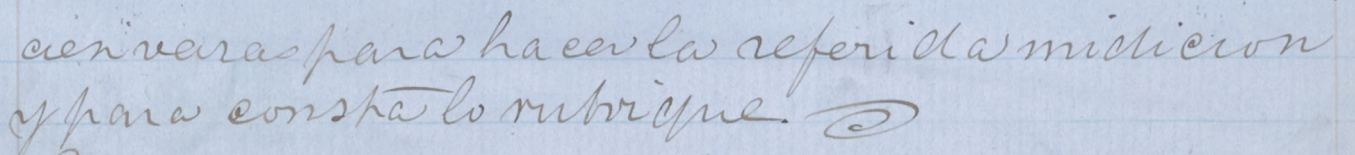 cien varas para hacer la referida midicion
y para constā lo rubriqué.